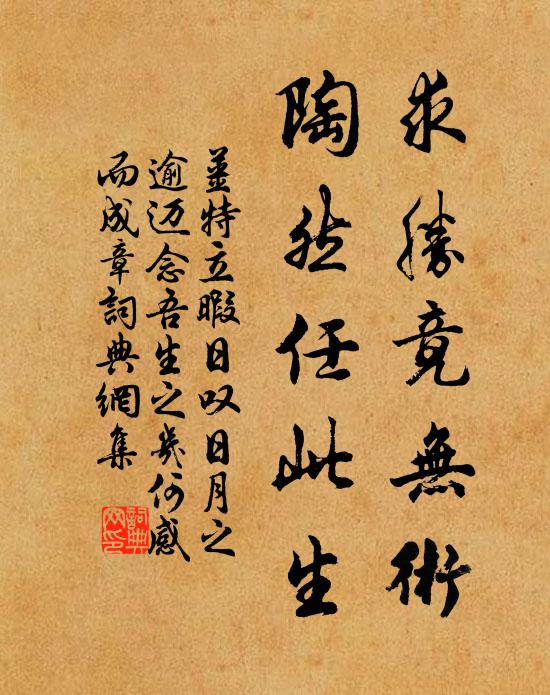 求勝竟無術
陶然任此生
姜特立暇日叹日月之
逾迈念吾生之几何感
而成章詞典網集
詞典